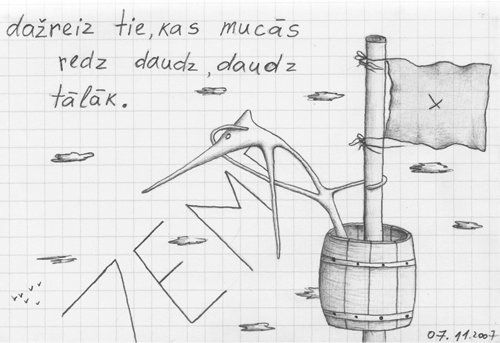 dažreiz tie, kas mucās
redz daudz, daudz
tālāk.
ZEME
x
07.11.2007